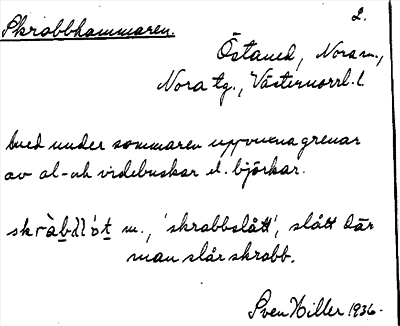 Skrabbhammaren.
2.
Östaned, Nora sn.,
Nora tg., Västernorrl. l.
med under sommaren uppvuxna grenar
av al- och videbuskar el. björkar.
m., 'skrabbslått', slått där
man slår skrabb.
Sven Hiller 1936.